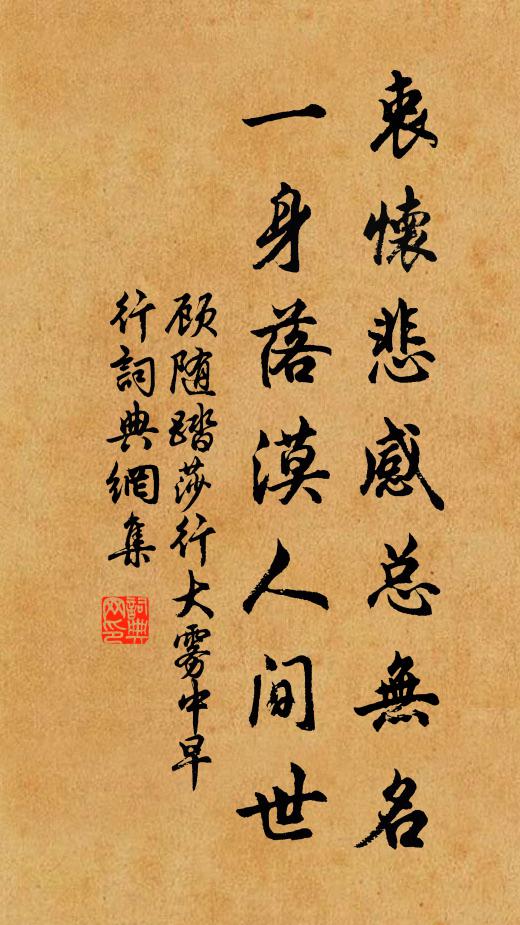 衷懷悲感总無名
一身落漠人间世
顾随踏莎行大雾中早
行詞典網集
詞典
网印